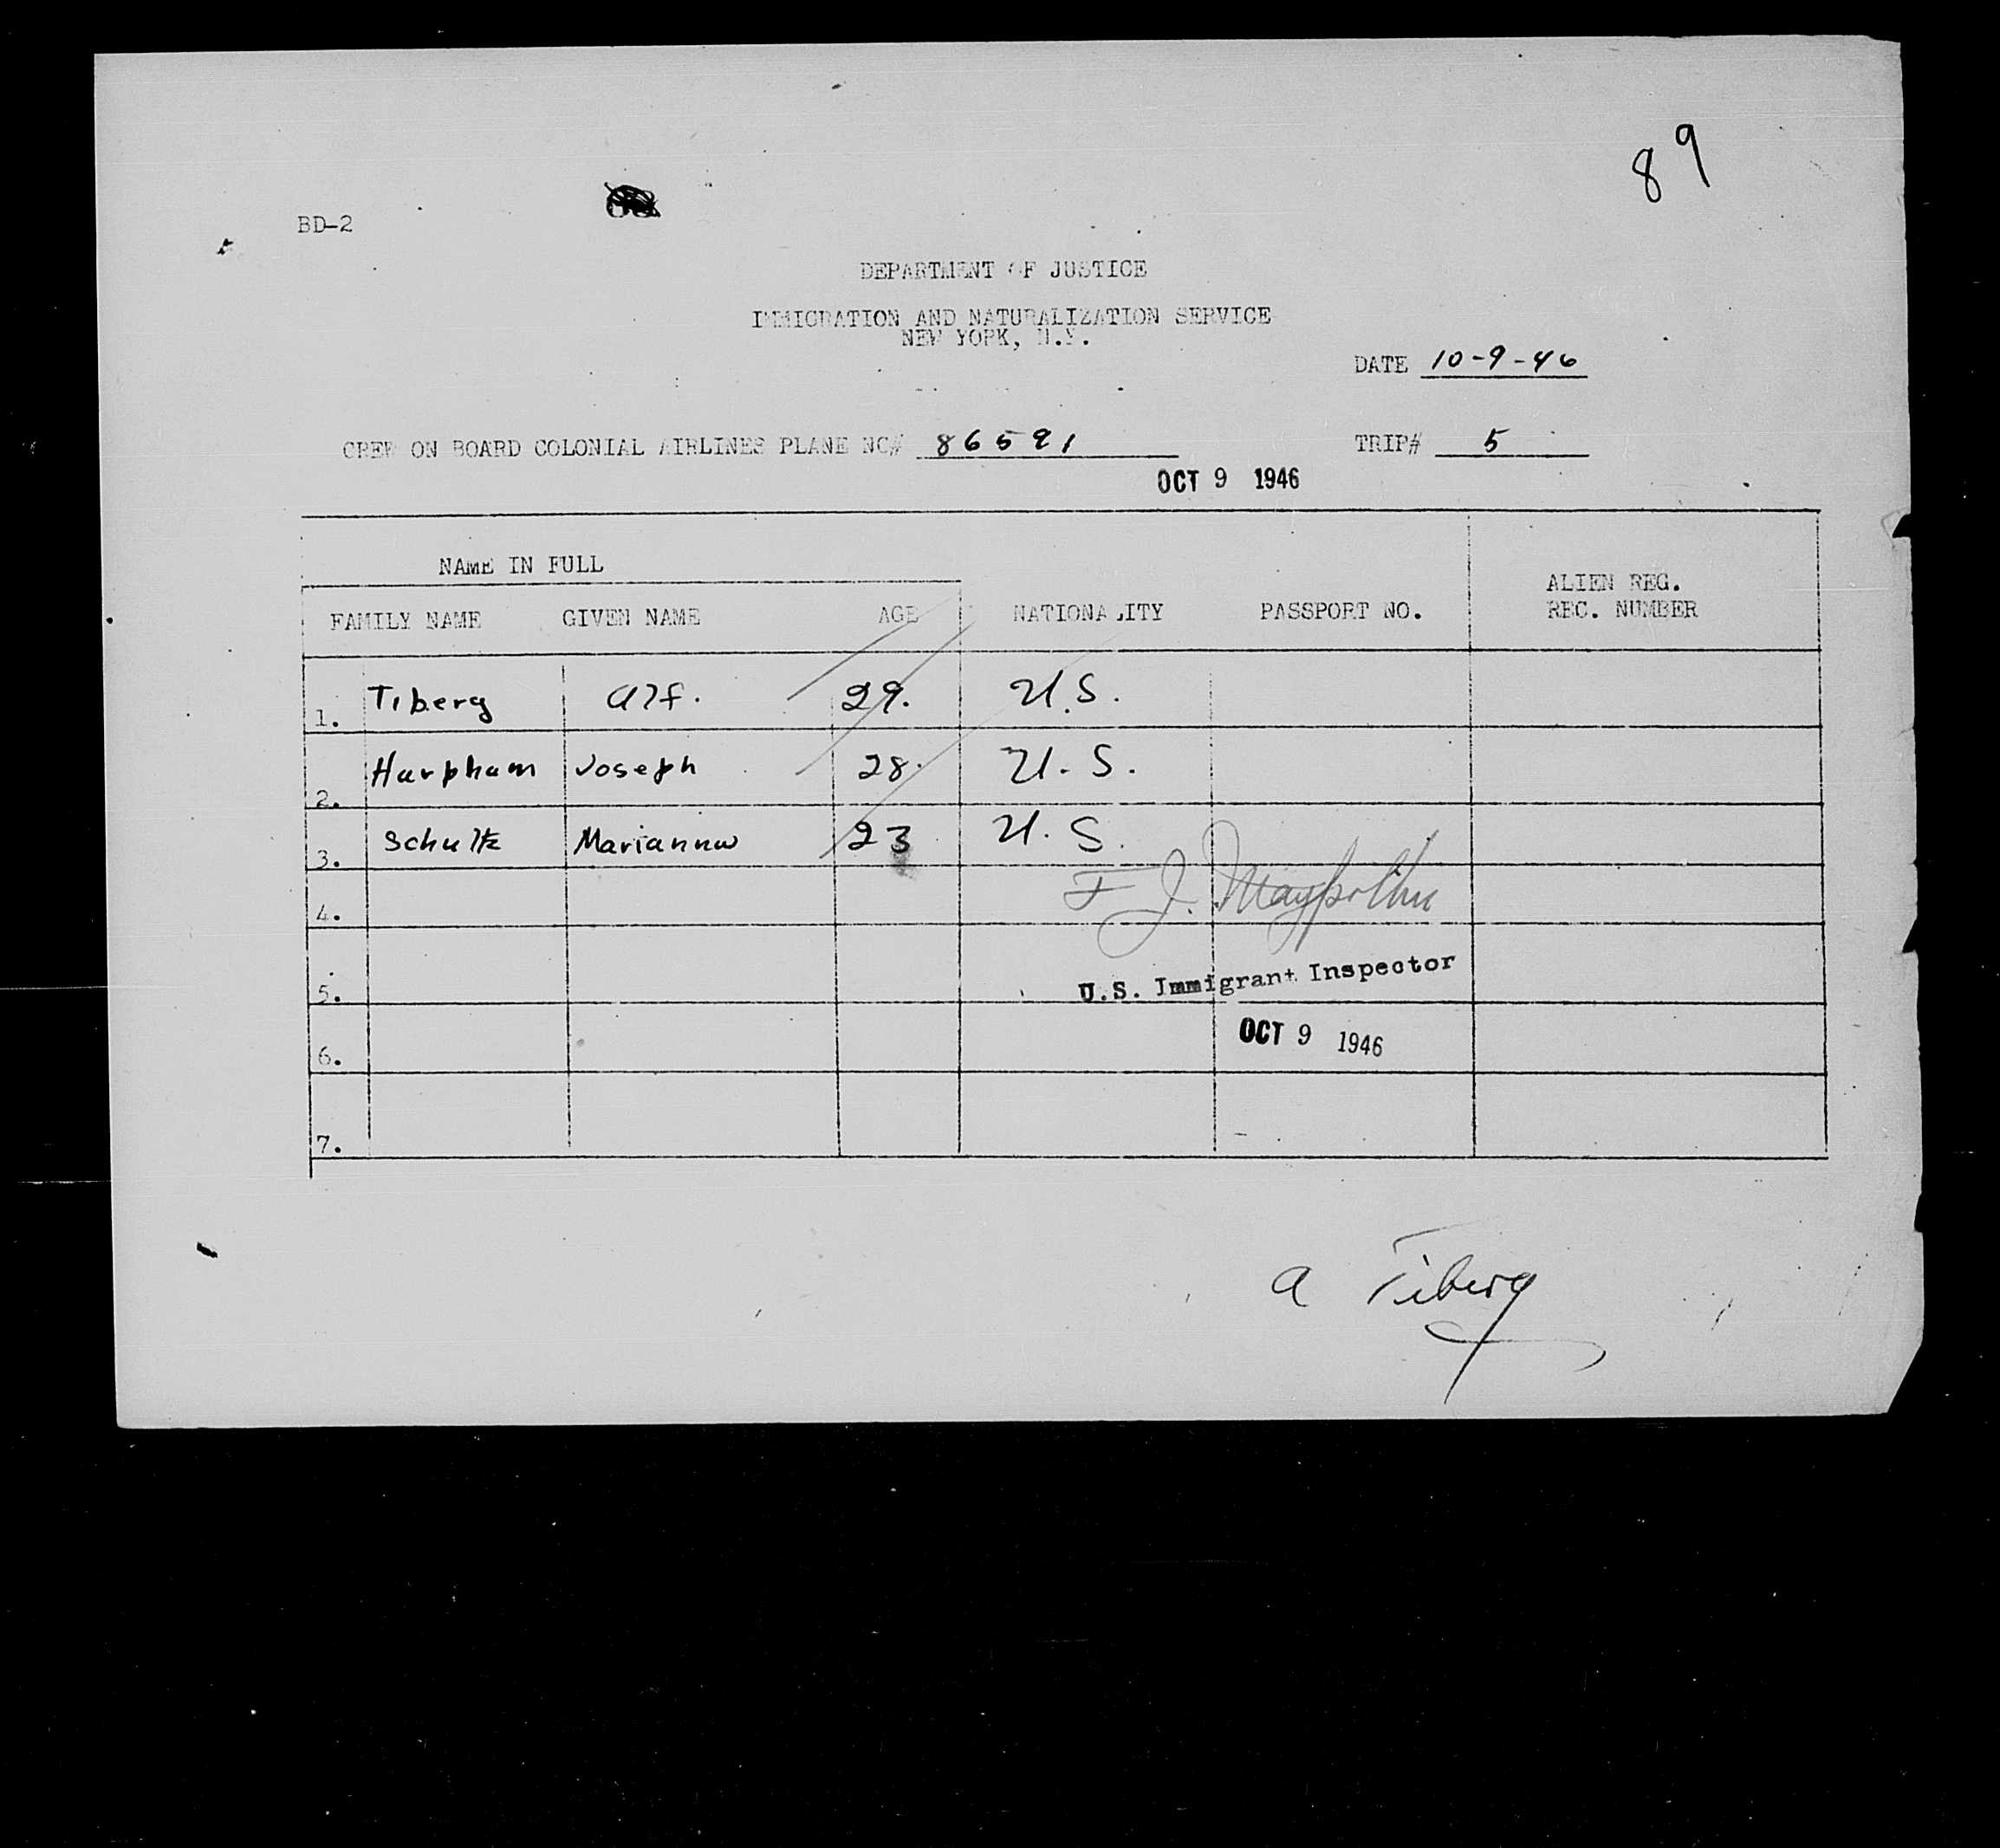 89
BD-2
DEPARTMENT OF JUSTICE
IMMIGRATION AND NATURALIZATION SERVICE
NEW YORK, N.Y.
DATE 10-9-46
CREW ON BOARD COLONIAL AIRLINES PLANE NC# 86591 TRIP# 5
OCT 9 1946
NAME IN FULL
FAMILY NAME GIVEN NAME AGE NATIONALITY PASSPORT NO. ALIEN REG. REC. NUMBER
1. Tiberg Alf. 29. U.S.
2. Harpham Joseph 28. U.S.
3. Schultz 23 U.S.
F J.
4.
U.S. Immigrant Inspector
5.
OCT 9 1946
6.
7.
A Tiberg